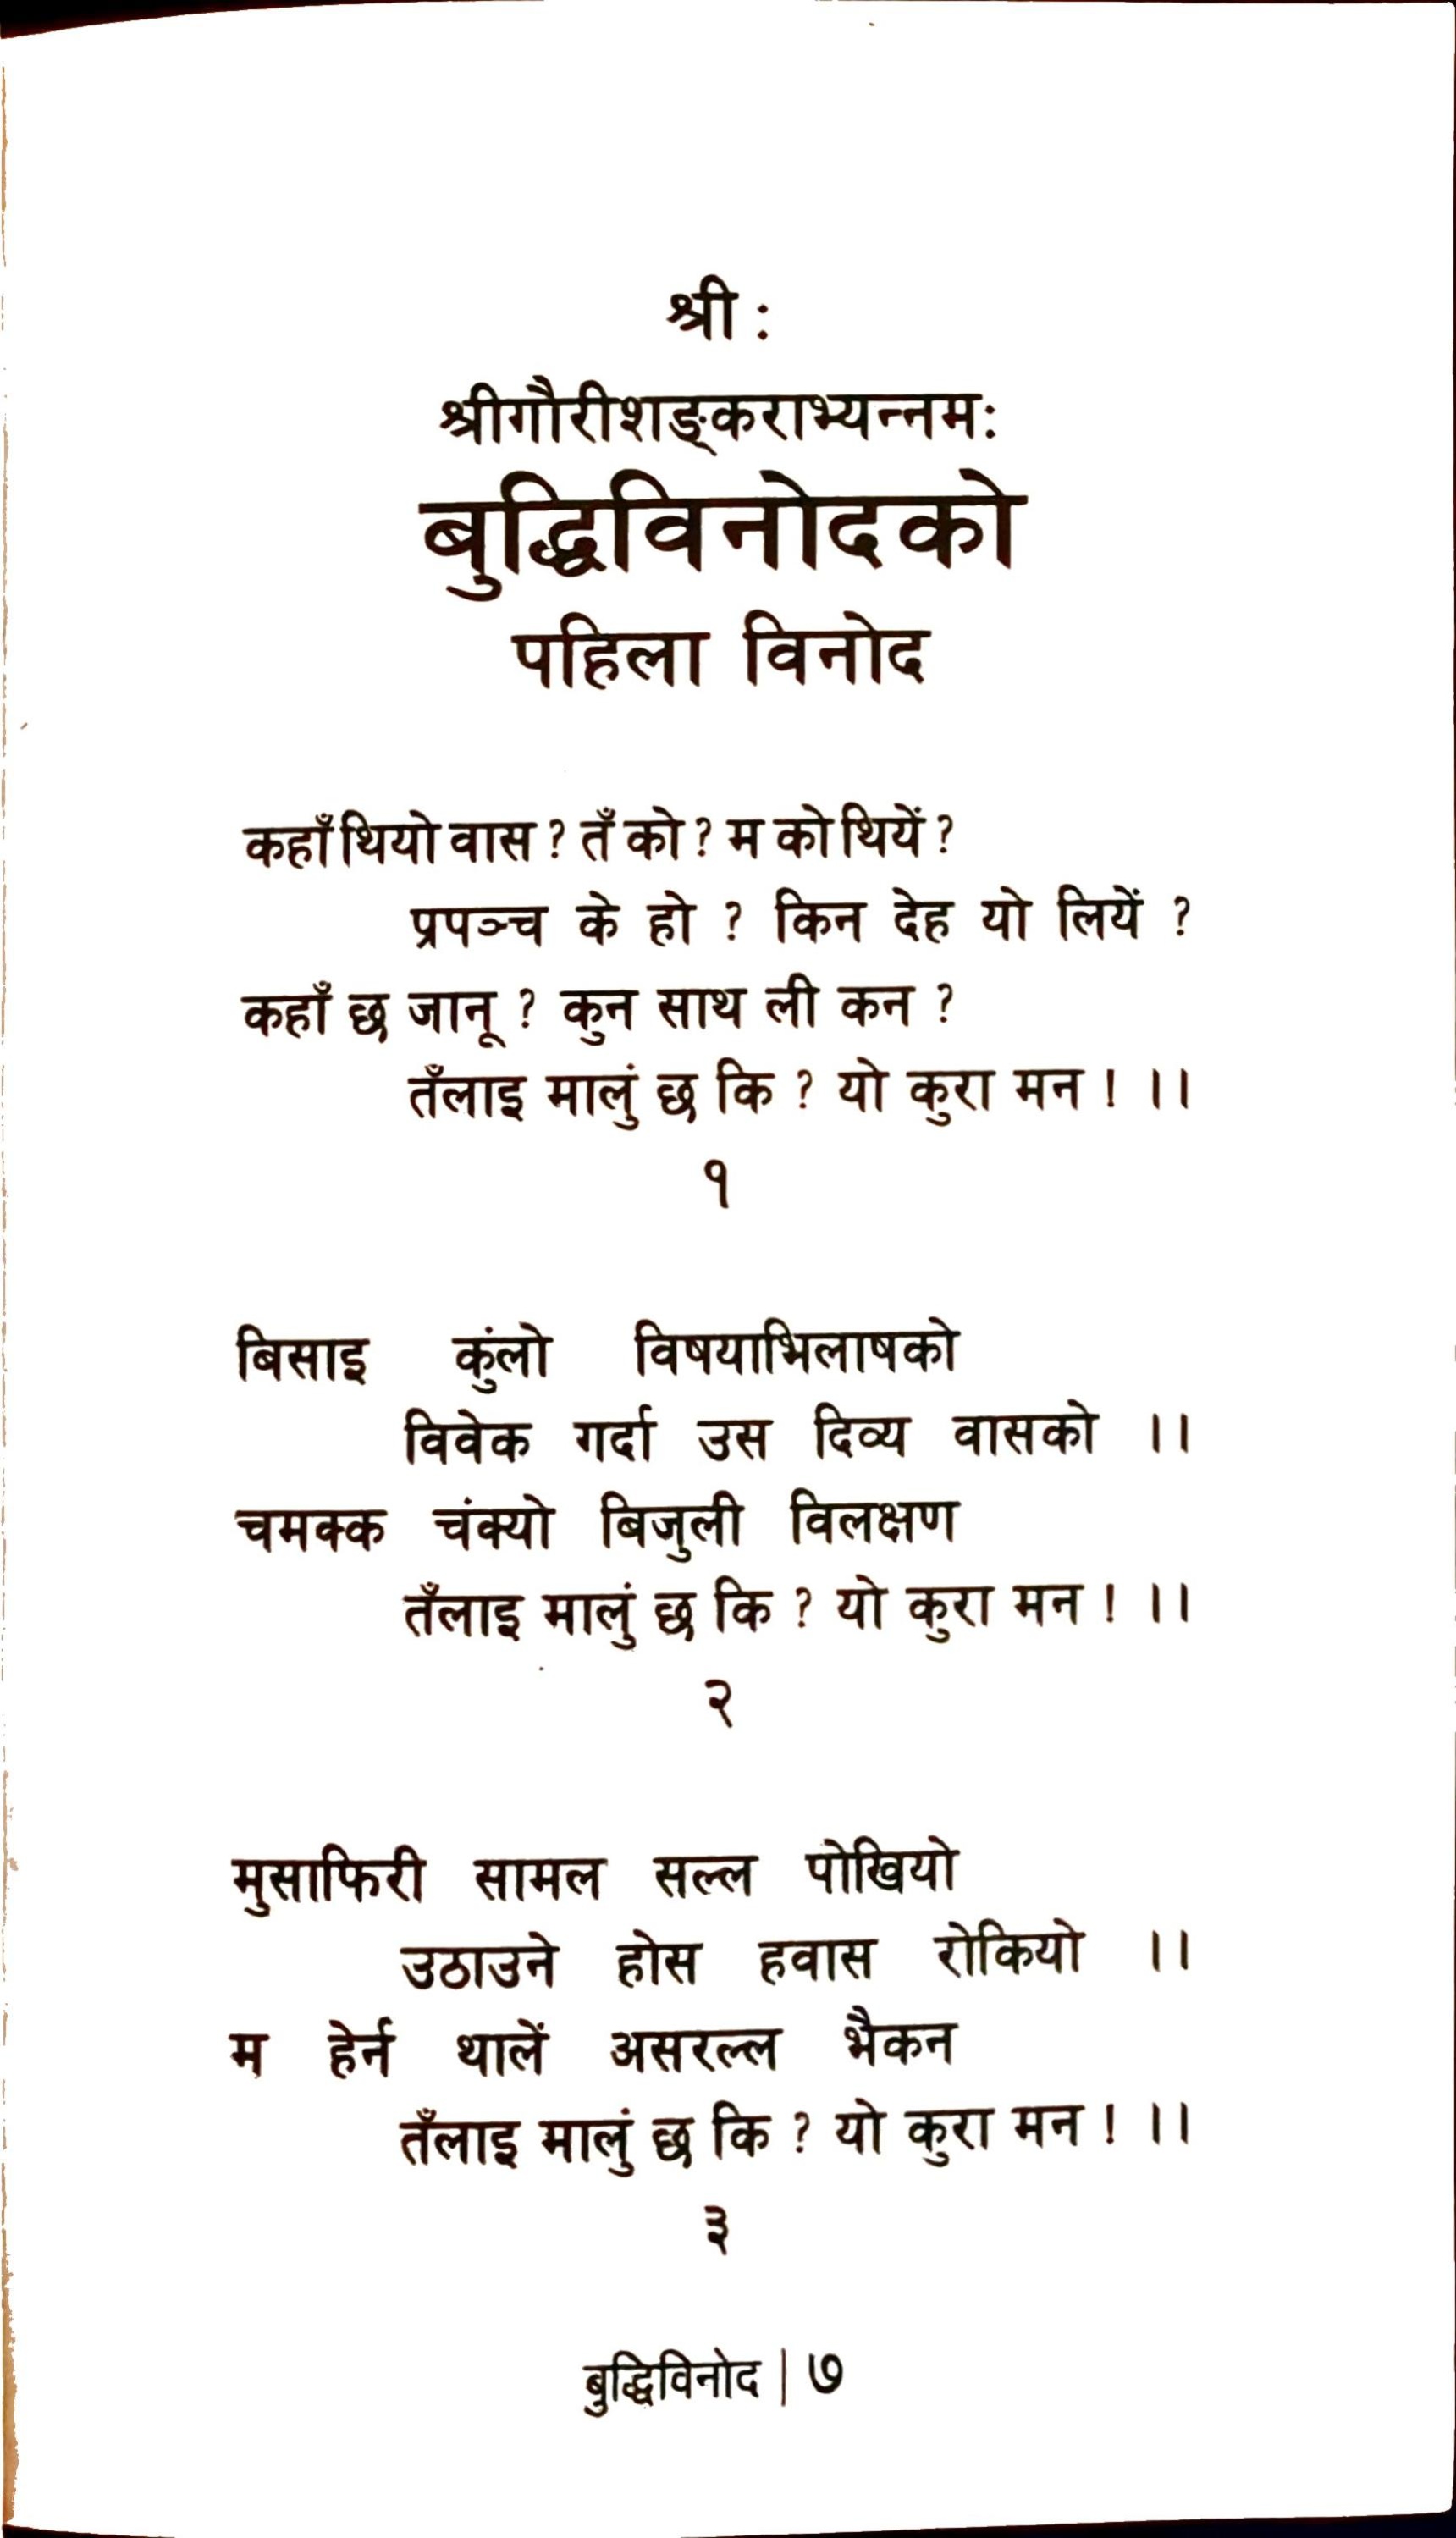 श्री :
श्रीगौरीशङ्कराभ्यन्नमः
बुद्धिविनोदको
पहिला विनोद
कहाँ थियो वास ? तँ को ? म को थियें ?
प्रपञ्च के हो ? किन देह यो लियें ?
कहाँ छ जानू ? कुन साथ ली कन ?
तँलाइ मालुं छ कि ? यो कुरा मन ! ।।
१
बिसाइ कुंलो विषयाभिलाषको
विवेक गर्दा उस दिव्य वासको ।।
चमक्क चंक्यो बिजुली विलक्षण
तँलाइ मालुं छ कि ? यो कुरा मन ! ।।
२
मुसाफिरी सामल सल्ल पोखियो
उठाउने होस हवास रोकियो ।।
म हेर्न थालें असरल्ल भैकन
तँलाइ मालुं छ कि ? यो कुरा मन ! ।।
३
बुद्धिविनोद | ७